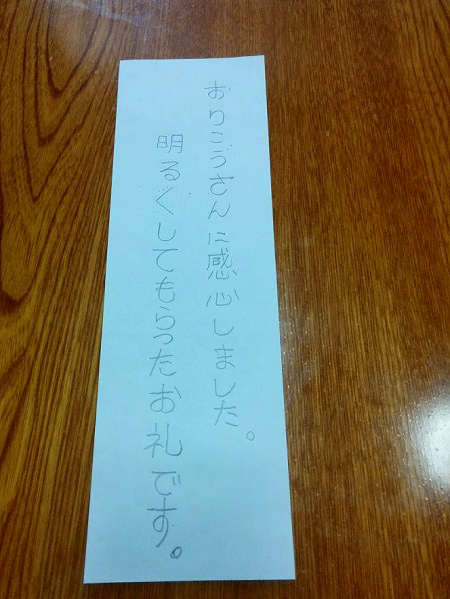 おりこうさんに感心しました。
明るくしてもらったお礼です。